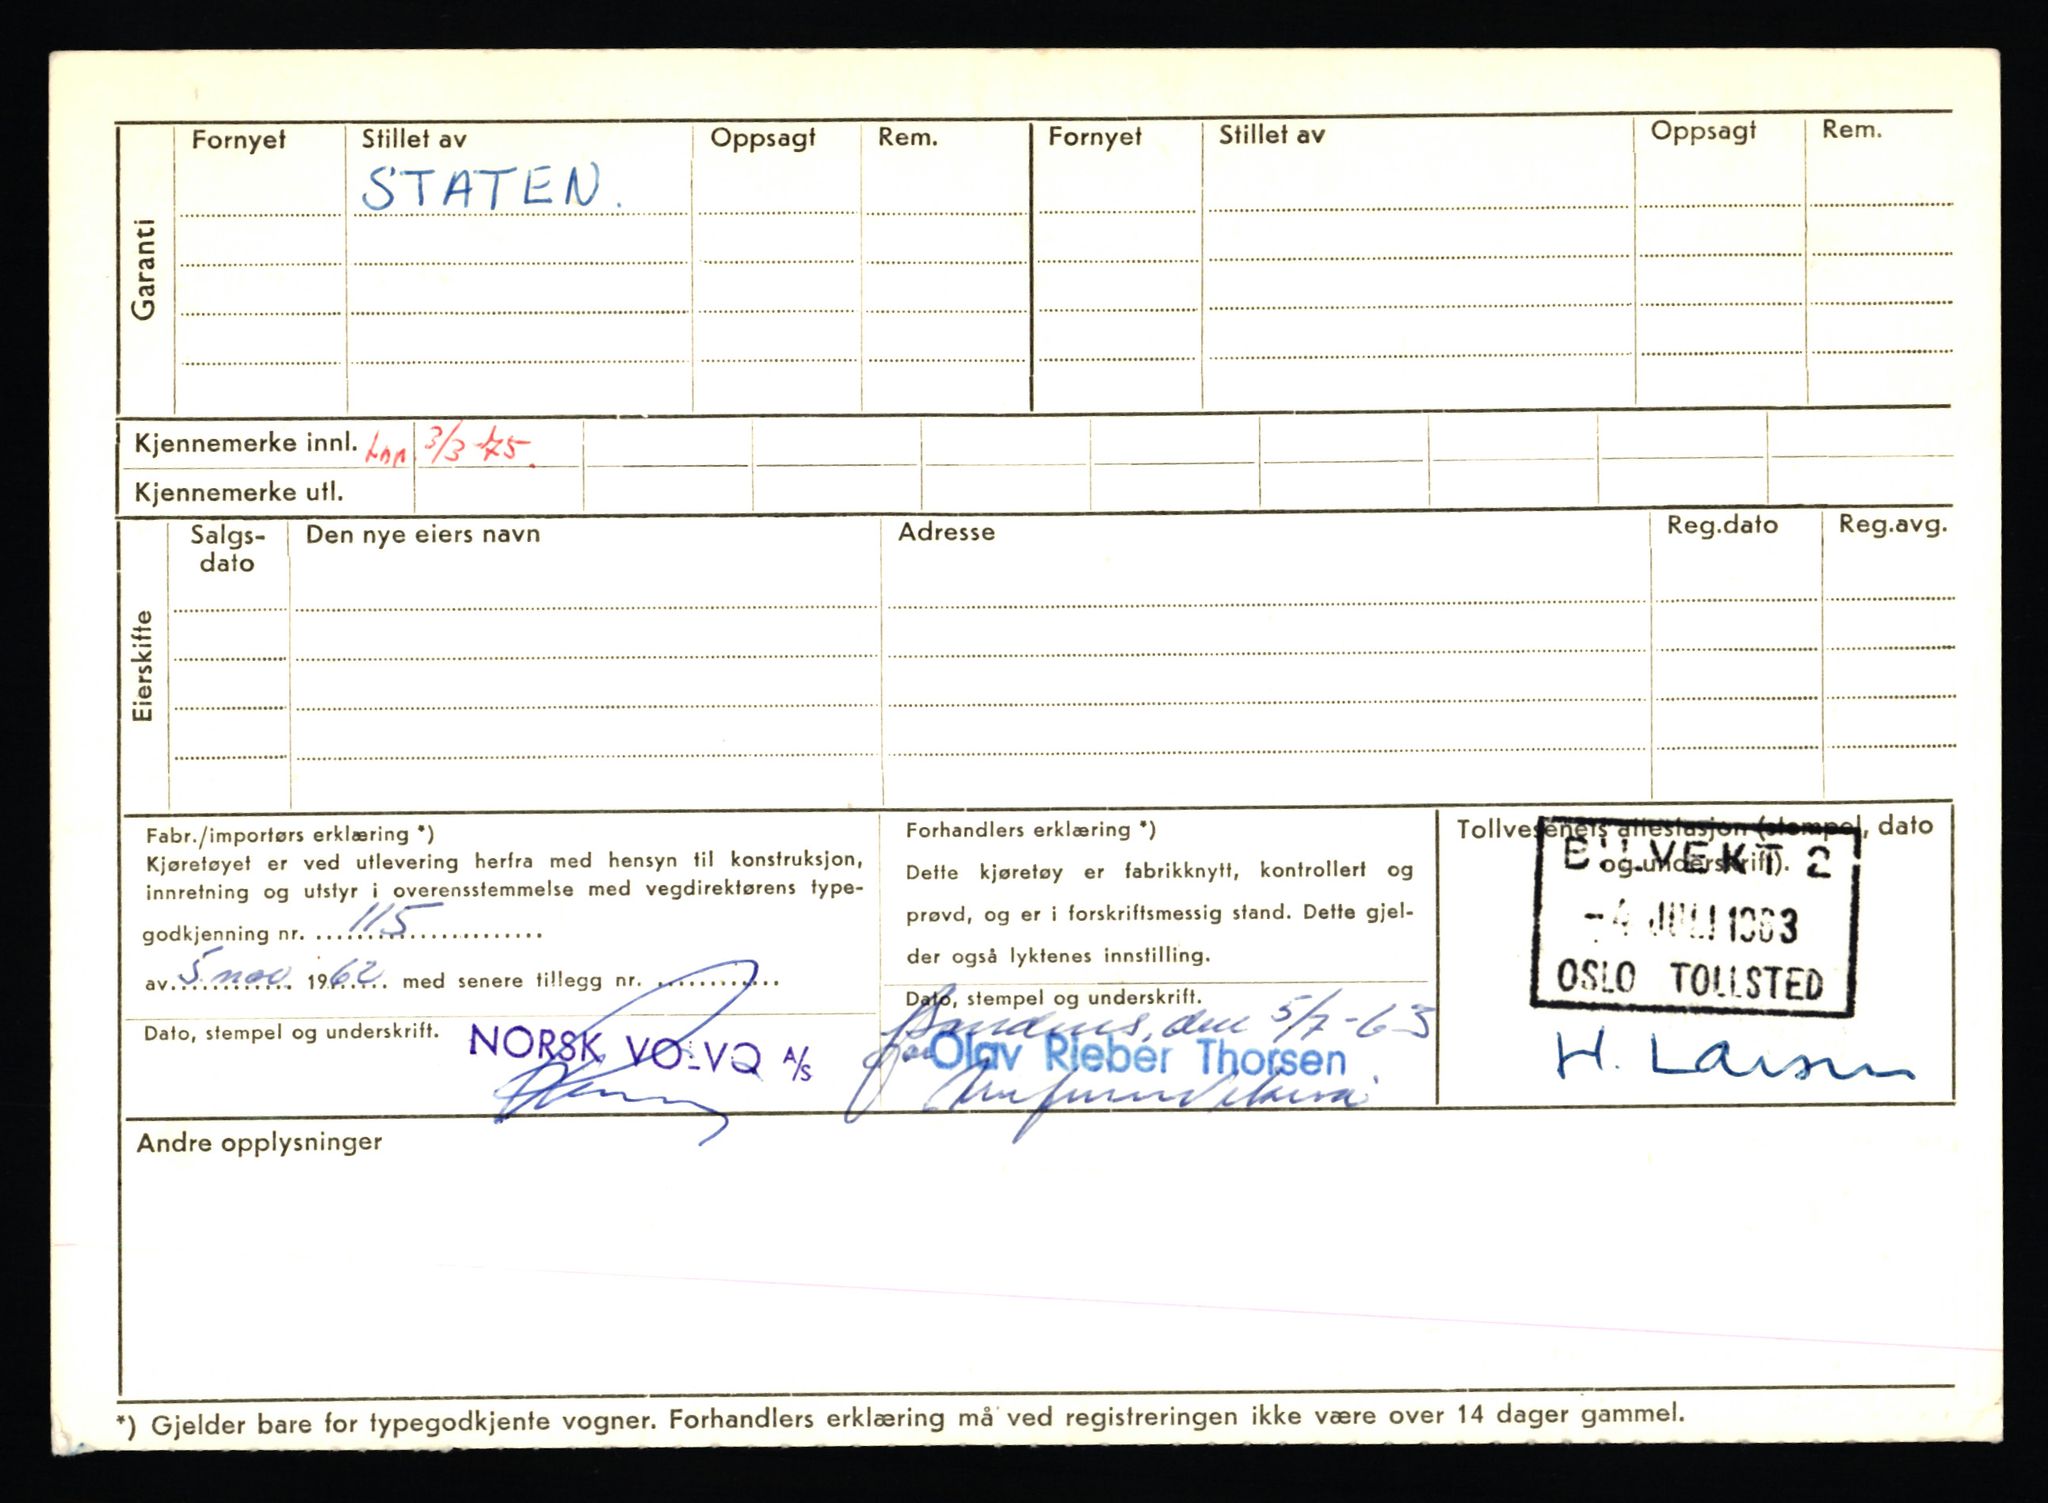 Garanti
Fornyet Stillet av Oppsagt Rem. Fornyet Stillet av Oppsagt Rem.
STATEN.
Kjennemerke innl. 3/3-75.
Kjennemerke utl.
Eierskifte
Salgs- Den nye eiers navn Adresse Reg.dato Reg.avg.
dato
Fabr./importørs erklæring *)
Kjøretøyet er ved utlevering herfra med hensyn til konstruksjon,
innretning og utstyr i overensstemmelse med vegdirektørens type-
godkjenning nr. 115
av 5 nov 1962 med senere tillegg nr.
Dato, stempel og underskrift.
NORSK VOLVO A/S
Forhandlers erklæring *)
Dette kjøretøy er fabrikknytt, kontrollert og
prøvd, og er i forskriftsmessig stand. Dette gjel-
der også lyktenes innstilling.
Dato, stempel og underskrift.
den 5/7-63
Olav Rieber Thorsen
Tollvesenets attestasjon (stempel, dato
og underskrift).
BILVEKT 2
-4 JULI 1963
OSLO TOLLSTED
H. Larsen
Andre opplysninger
*) Gjelder bare for typegodkjente vogner. Forhandlers erklæring må ved registreringen ikke være over 14 dager gammel.